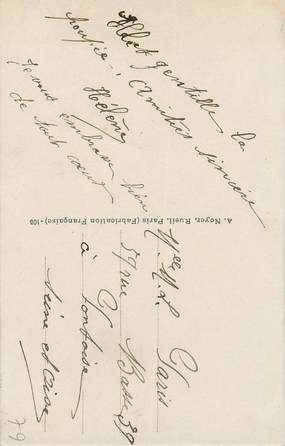 Elle est gentille la
poupée. Amitiés sincères
Hélène
Je vous embrasse bien
de tout cœur
A. Noyer, Rueil, Paris (Fabrication Française)-108
Mlle M. L. Paris
59 rue Basse 59
à Pontoise
Seine et Oise
79